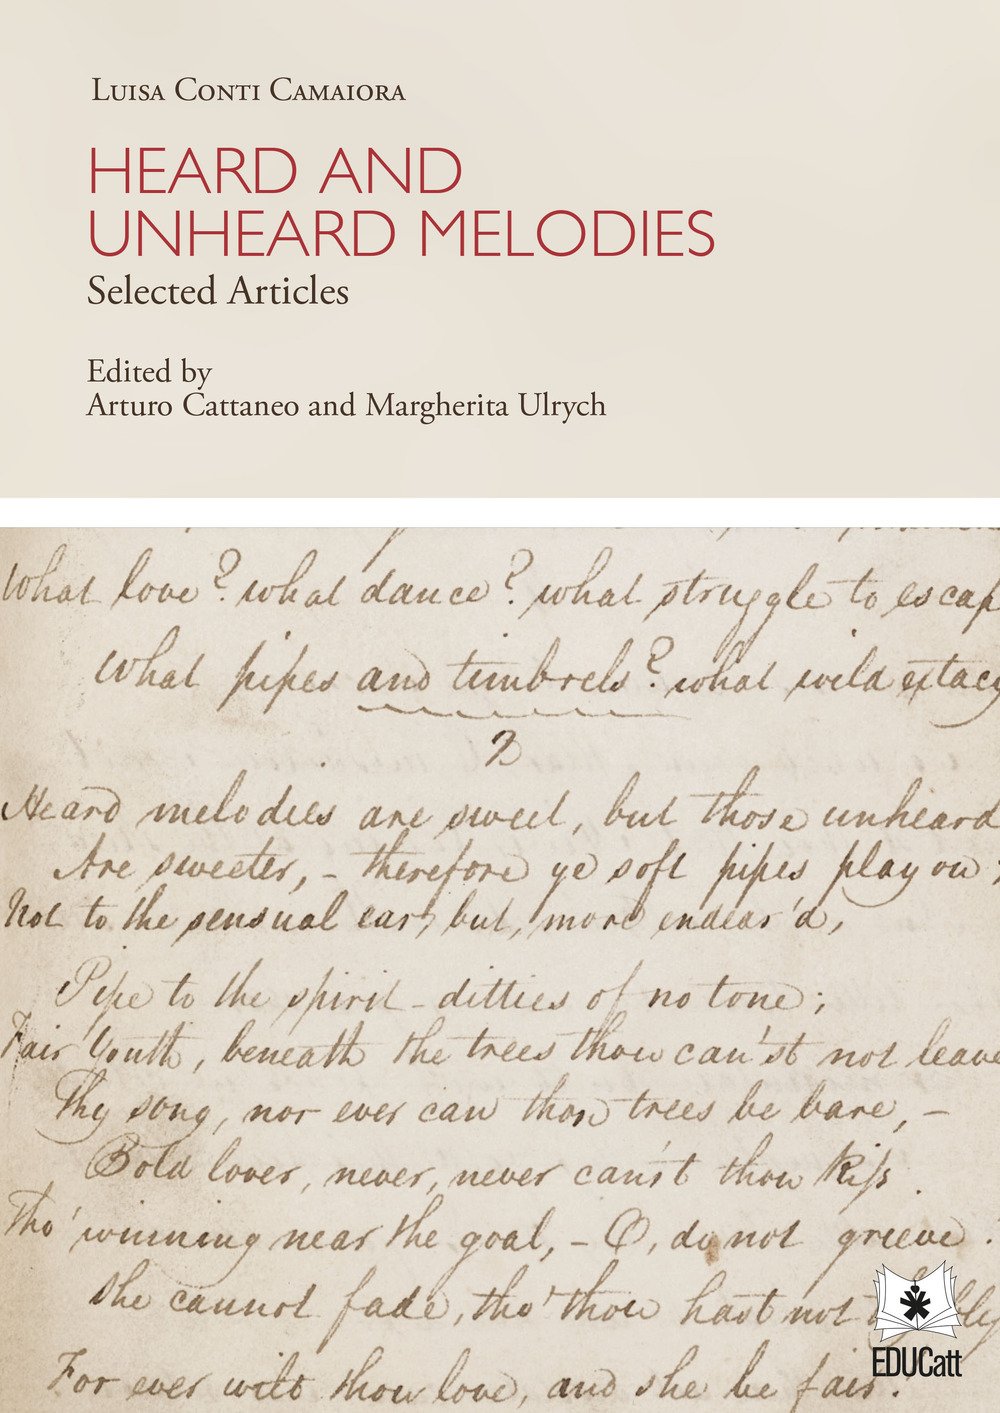 Luisa Conti Camaiora
HEARD AND
UNHEARD MELODIES
Selected Articles
Edited by
Arturo Cattaneo and Margherita Ulrych
What love? what dance? what struggle to escap
What pipes and timbrels? what wild extacy
2
Heard melodies are sweet, but those unheard
Are sweeter, – therefore ye soft pipes play on;
Not to the sensual ear, but, more endear'd,
Pipe to the spirit – ditties of no tone;
Fair Youth, beneath the trees thou can'st not leave
Thy song, nor ever can those trees be bare, –
Bold lover, never, never can'st thou kiss.
Tho' winning near the goal, – O, do not grieve.
She cannot fade, tho' thou hast not thy
For ever wilt thou love, and she be fair.
EDUCatt